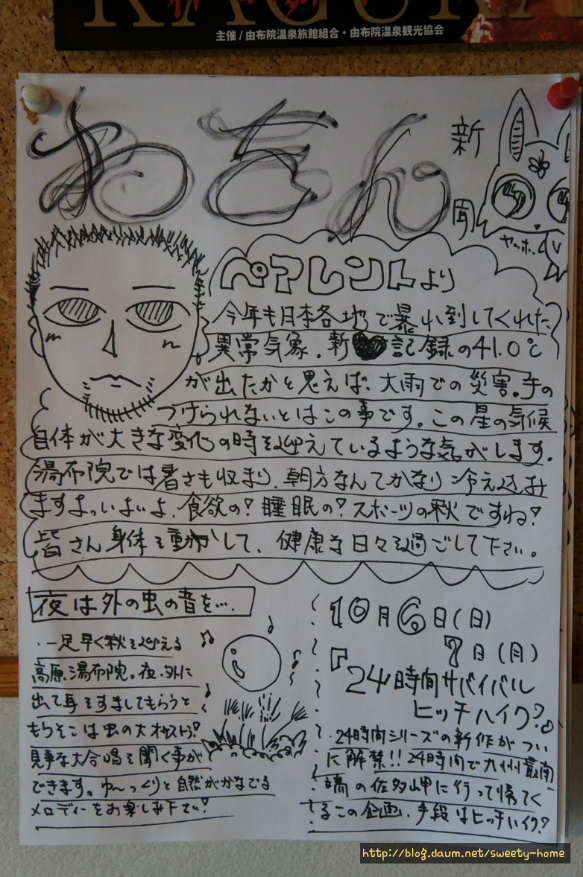 KAGURA
主催/由布院温泉旅館組合・由布院温泉観光協会
わをん
新聞
ヤッホー
ペアレントより
今年も日本各地で暴れ倒してくれた
異常気象。新 記録の41.0℃
が出たかと思えば、大雨での災害。手の
つけられないとはこの事です。この星の気候
自体が大きな変化の時を迎えているような気がします。
湯布院では暑さも収まり、朝方なんてかなり冷え込み
ますよっ。いよいよ、食欲の?睡眠の?スポーツの秋ですね?
皆さん身体を動かして、健康な日々を過ごして下さい。
夜は外の虫の音を…
一足早く秋を迎える
高原、湯布院。夜、外に
出て耳をすましてもらうと
もうそこは虫の大オーケストラ?
見事な大合唱を聞く事が
できます。ゆ〜っくりと自然がかなでる
メロディーをお楽しみ下さい?
10月6日(日)
7日(月)
『24時間サバイバル
ヒッチハイク?
・24時間シリーズの新作がつい
に解禁!!24時間で九州最南
端の佐多岬に行って帰てく
るこの企画、手段はヒッチハイク?
http://blog.daum.net/sweety-home